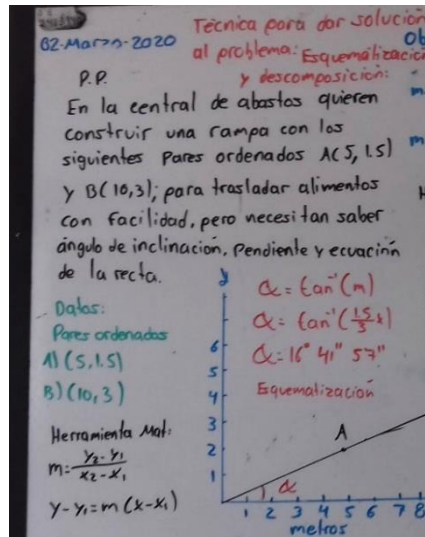 02-Marzo-2020
Técnica para dar solución
al problema: Esquematizació
y descomposición:
P.P.
En la central de abastos quieren
construir una rampa con los
siguientes Pares ordenados A(5, 1.5)
y B(10,3); para trasladar alimentos
con facilidad, pero necesitan saber
ángulo de inclinación, Pendiente y ecuación
de la recta.
Datos:
Pares ordenados
A) (5,1.5)
B) (10,3)
Herramienta Mat:
m = y₂-y₁ / x₂-x₁
y-y₁=m (x-x₁)
y
α = tan⁻¹(m)
α = 16° 41" 57"
Esquematización
6
5
4
3
2
1
A
α
1 2 3 4 5 6 7 8
metros